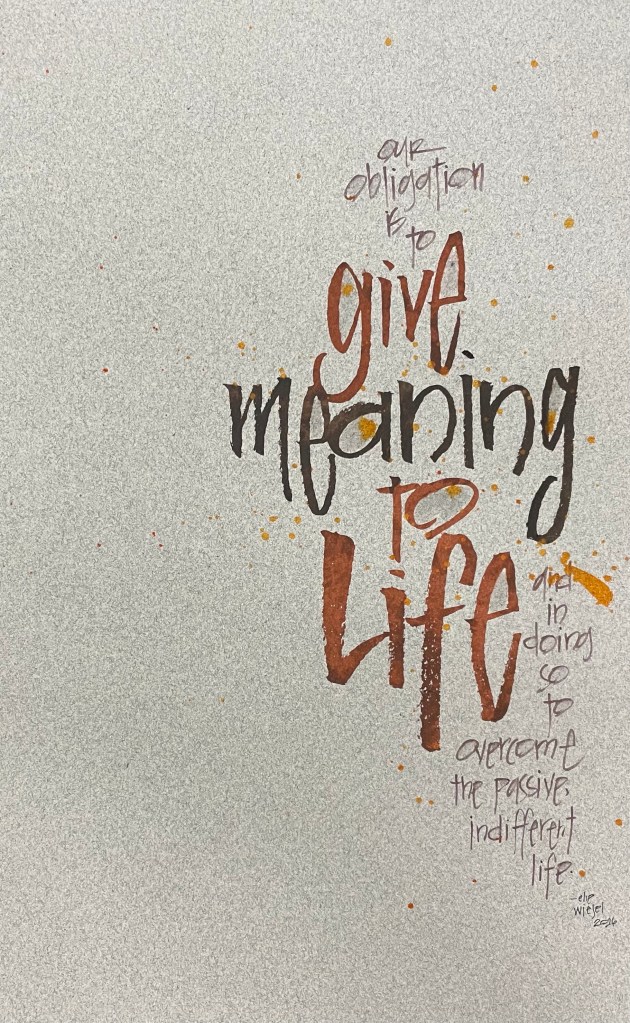 our
obligation
is
to
give
meaning
to
Life
and
in
doing
so
to
overcome
the passive,
indifferent
life.
-elie
wiesel
2026